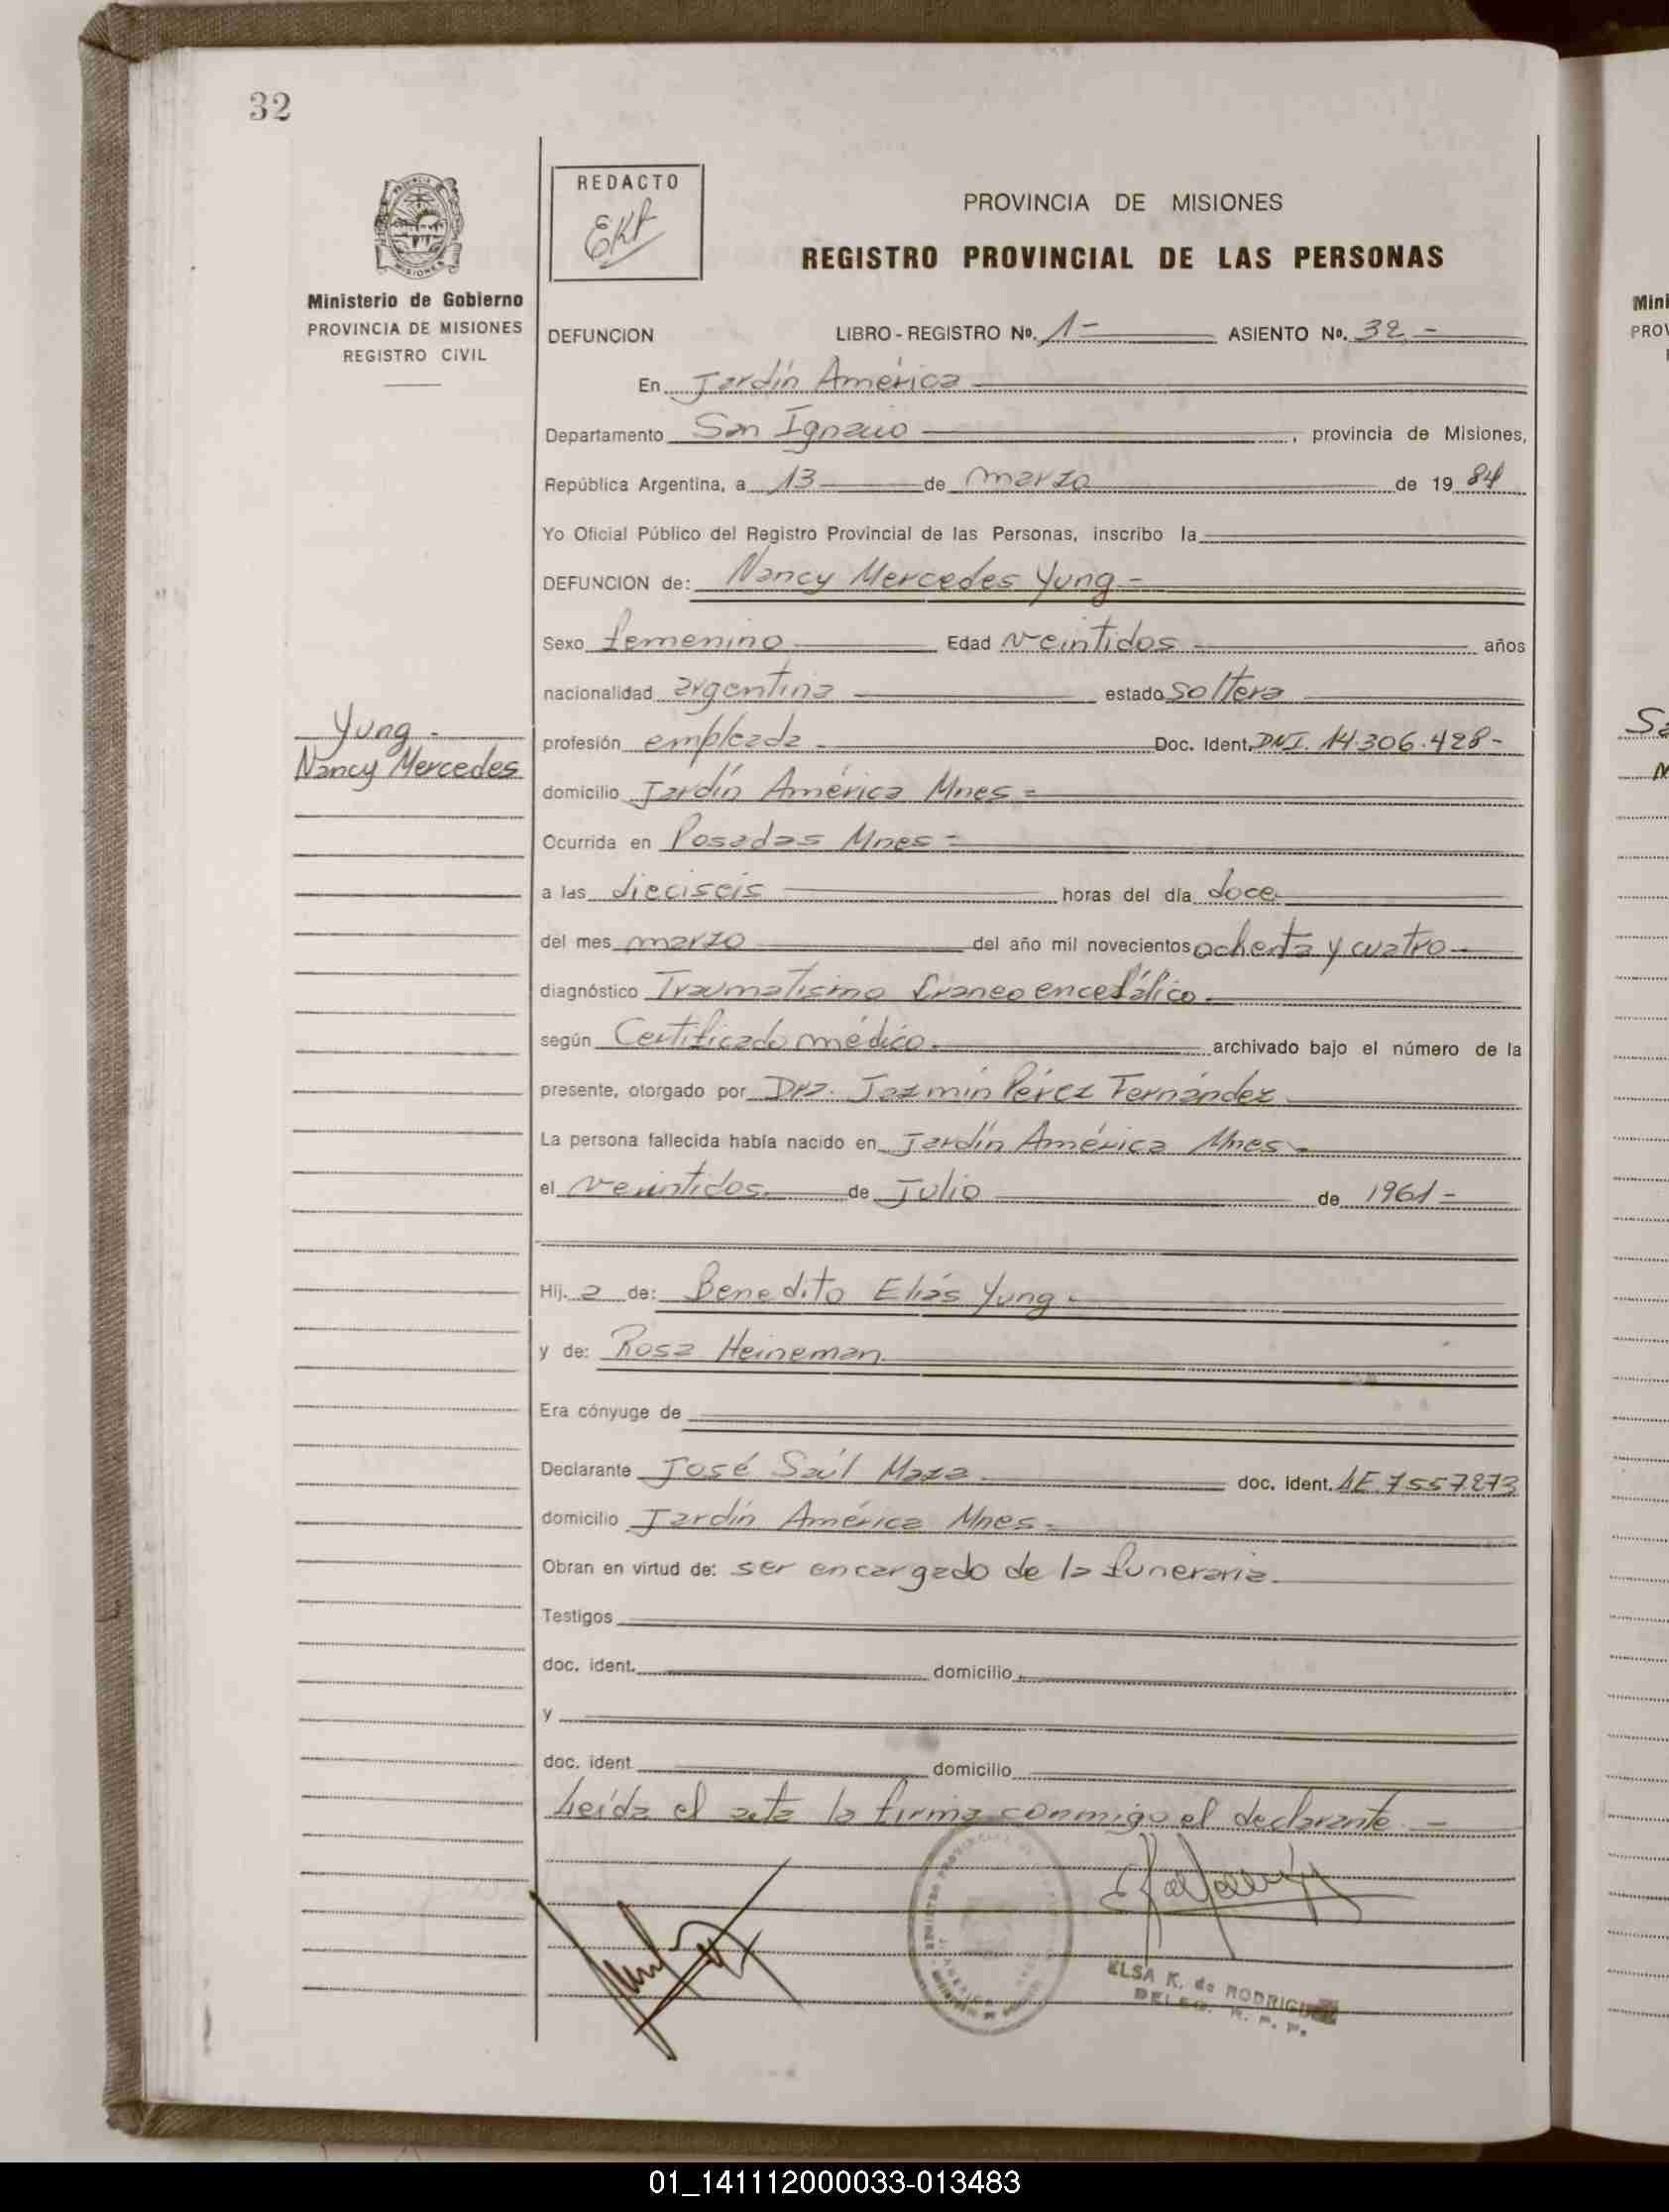 32
REDACTO
EKR
PROVINCIA DE MISIONES
REGISTRO PROVINCIAL DE LAS PERSONAS
Ministerio de Gobierno
PROVINCIA DE MISIONES
REGISTRO CIVIL
DEFUNCION LIBRO-REGISTRO Nº. 1- ASIENTO Nº. 32-
En Jardín América
Departamento San Ignacio, provincia de Misiones,
República Argentina, a 13 de marzo de 1984
Yo Oficial Público del Registro Provincial de las Personas, inscribo la
DEFUNCION de: Nancy Mercedes Yung-
Sexo femenino Edad veintidos años
nacionalidad argentina estado soltera
Yung-
Nancy Mercedes
profesión empleada Doc. Ident. DNI. 14.306.428-
domicilio Jardín América Mnes-
Ocurrida en Posadas Mnes-
a las dieciseis horas del día doce
del mes marzo del año mil novecientos ochenta y cuatro-
diagnóstico Traumatismo craneo encefálico-
según Certificado médico archivado bajo el número de la
presente, otorgado por Dra. Jazmin Pérez Fernández
La persona fallecida había nacido en Jardín América Mnes-
el veintidos de Julio de 1961-
Hij. a de: Benedito Elías Yung-
y de: Rosa Heineman
Era cónyuge de
Declarante José Saúl Maza doc. Ident. LE 7557273
domicilio Jardín América Mnes-
Obran en virtud de: ser encargado de la funeraria
Testigos
doc. ident. domicilio
y
doc. ident domicilio
Leída el acta la firma conmigo el declarante.-
ELSA K. de RODRIGUEZ
DELEG. R. P. P.
01_141112000033-013483